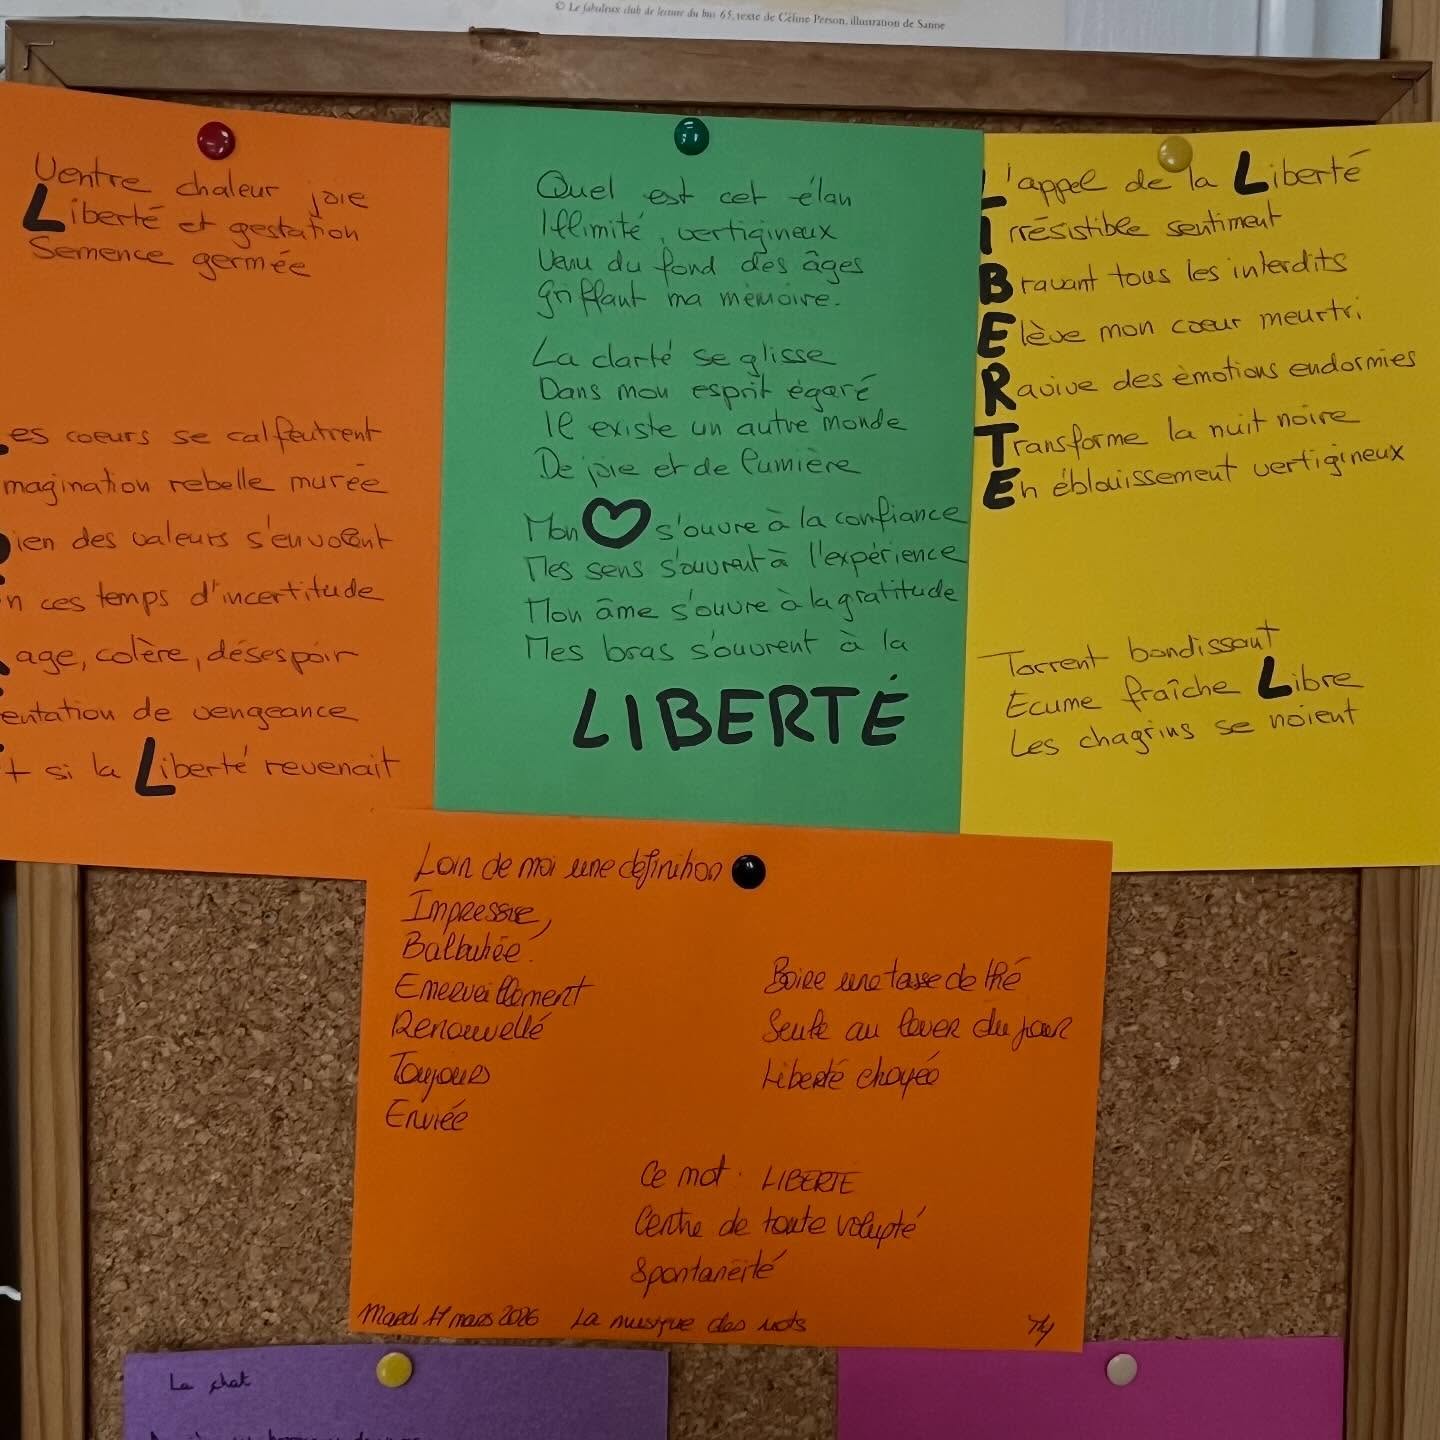 © Le fabuleux club de lecture du bus 65, texte de Céline Person, illustration de Sanne
Ventre chaleur joie
Liberté et gestation
Semence germée
es coeurs se calfeutrent
magination rebelle murée
ien des valeurs s'envolent
n ces temps d'incertitude
age, colère, désespoir
entation de vengeance
t si la Liberté revenait
Quel est cet élan
Illimité, vertigineux
Venu du fond des âges
Griffant ma mémoire.
La clarté se glisse
Dans mon esprit égaré
Il existe un autre monde
De joie et de lumière
Mon ♡ s'ouvre à la confiance
Mes sens s'ouvrent à l'expérience
Mon âme s'ouvre à la gratitude
Mes bras s'ouvrent à la
LIBERTÉ
L'appel de la Liberté
Irrésistible sentiment
Bravant tous les interdits
Elève mon coeur meurtri
Ravive des émotions endormies
Transforme la nuit noire
En éblouissement vertigineux
Torrent bondissant
Ecume fraîche Libre
Les chagrins se noient
Loin de moi une définition
Impressive,
Balbutiée.
Emerveillement
Renouvellé
Toujours
Enviée
Boire une tasse de thé
Seule au lever du jour
Liberté choyée
Ce mot. LIBERTE
Centre de toute volupté
Spontanéité
Mardi 17 mars 2026 La musique des mots
La chat